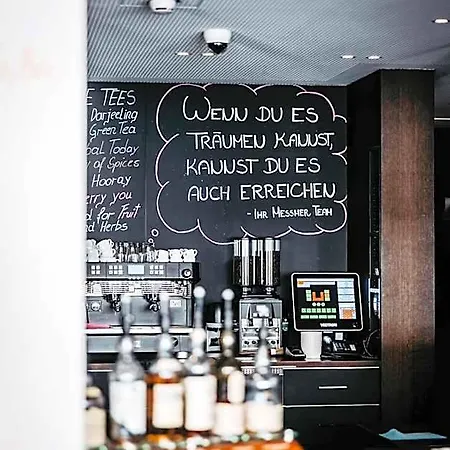 E TEES
Darjeeling
Green Tea
bal Today
y of Spices
Hooray
erry you
d for Fruit
nd Herbs
WENN DU ES
TRÄUMEN KANNST,
KANNST DU ES
AUCH ERREICHEN
- IHR MESSHER TEAM
VECTRON